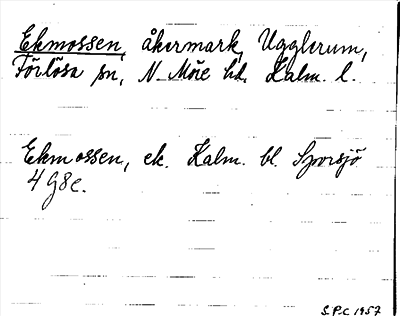 Ekmossen, åkermark, Ugglerum,
Förlösa sn, N. Möre hd, Kalm. l.
Ekmossen, ek. Kalm. bl. Sporsjö
4 G 8 c.
S.P.C 1957